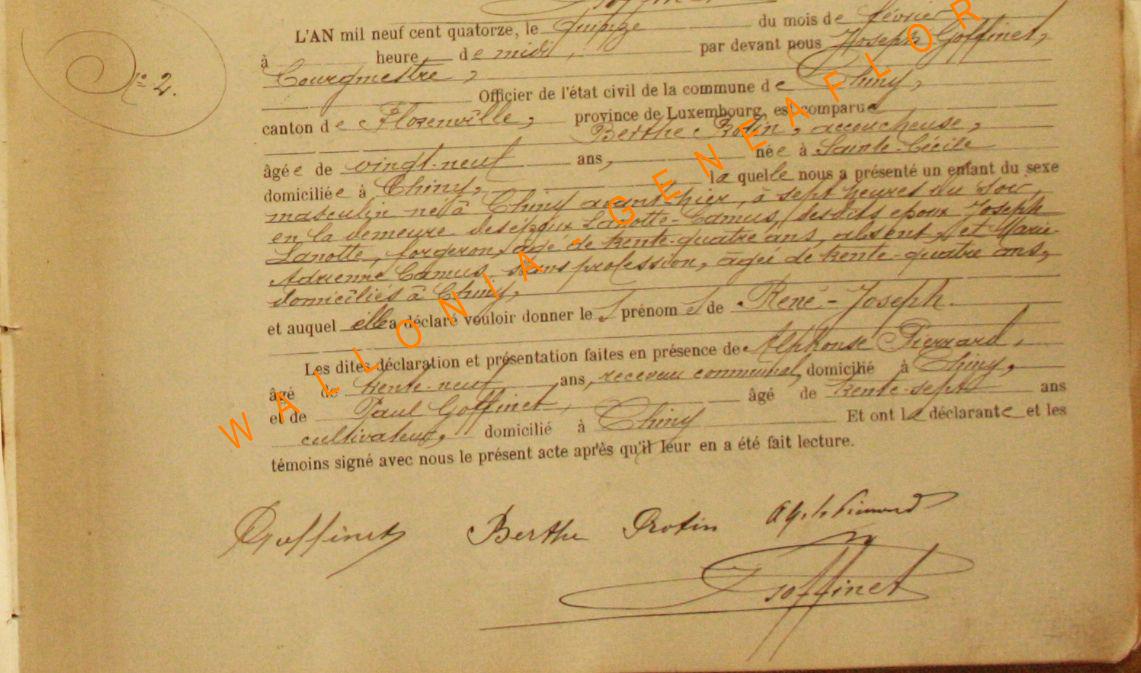 Goffinet
N° 2.
L'AN mil neuf cent quatorze, le quinze du mois de février
à heure de midi, par devant nous Joseph Goffinet,
Bourgmestre,
Officier de l'état civil de la commune de Chiny,
canton de Florenville, province de Luxembourg, est comparue
Berthe Rotin, accoucheuse,
âgée de vingt-neuf ans, née à Sainte-Cécile
domiciliée à Chiny, laquelle nous a présenté un enfant du sexe
masculin né à Chiny avant-hier, à sept heures du soir,
en la demeure des époux Lanotte-Camus, desdits époux Joseph
Lanotte, forgeron, âgé de trente-quatre ans, absent, et Marie
Adrienne Camus, sans profession, âgée de trente-quatre ans,
domiciliés à Chiny,
et auquel elle a déclaré vouloir donner le s prénom s de René-Joseph.
Les dites déclaration et présentation faites en présence de Alphonse Pierrard,
âgé de trente-neuf ans, receveur communal, domicilié à Chiny,
et de Paul Goffinet, âgé de trente-sept ans
cultivateur, domicilié à Chiny Et ont la déclarante et les
témoins signé avec nous le présent acte après qu'il leur en a été fait lecture.
Goffinet Berthe Rotin Pierrard
Goffinet
WALLONIA - GENEAFLOR